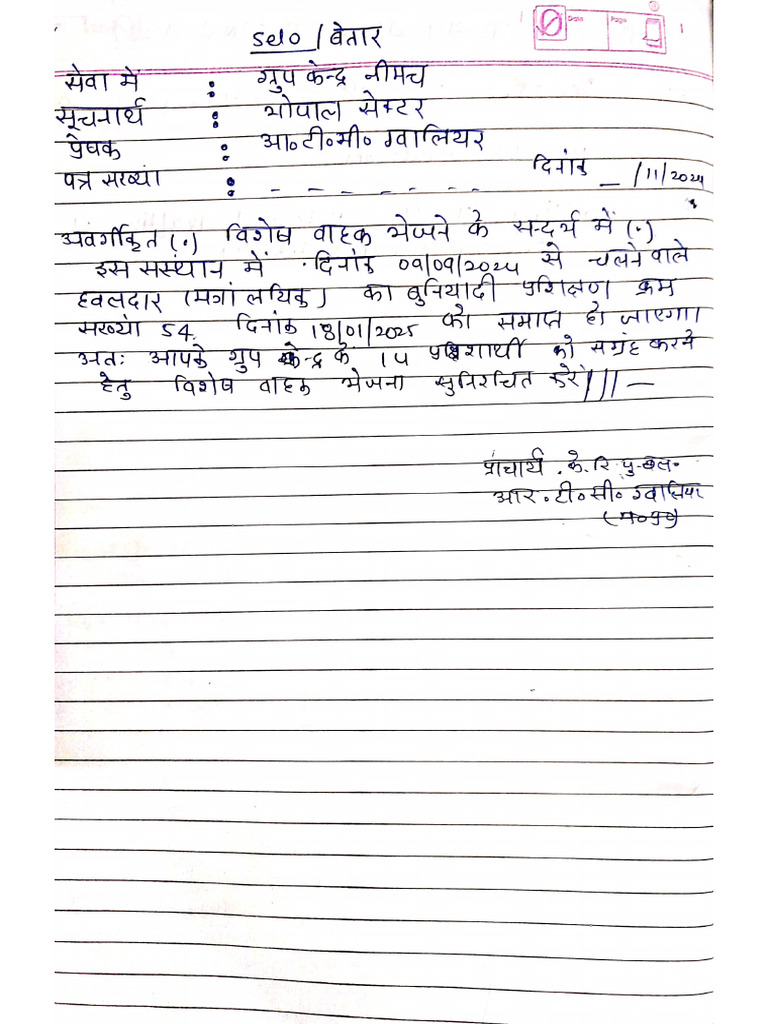 selo / बेतार
Date Page
सेवा में : ग्रुप केन्द्र नीमच
सूचनार्थ : भोपाल सेक्टर
प्रेषक : आ०टी०सी० ग्वालियर
पत्र सख्यां : - - - - - - - - दिनांक _ /11/2024
अवर्गीकृत (•) विशेष वाहक भेजने के सन्दर्भ में (•)
इस सस्थान में दिनांक 09/09/2024 से चलने वाले
हवलदार (मत्रांलयिक) का बुनियादी प्रशिक्षण क्रम
सख्यां 54. दिनांक 18/01/2025 को समाप्त हो जाएगा।
अतः आपके ग्रुप केन्द्र के 14 प्रशिशार्थी को सग्रह करने
हेतु विशेष वाहक भेजना सुनिश्चित करें///—
प्रांचार्य . के. रि. पु. बल.
आर.टी०सी० ग्वालियर
(म०प्र०)